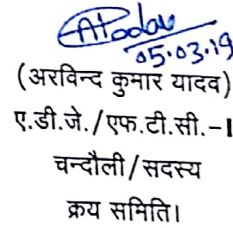 05.03.19
(अरविन्द कुमार यादव)
ए.डी.जे./एफ.टी.सी.-I
चन्दौली/सदस्य
क्रय समिति।